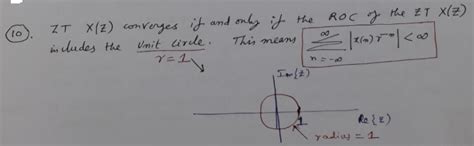 (10). ZT X(Z) converges if and only if the ROC of the ZT X(Z)
includes the Unit Circle. This means ∞ Σ n = -∞ |x(n) r⁻ⁿ| < ∞
r = 1
Im{Z}
1
Re{Z}
radius = 1